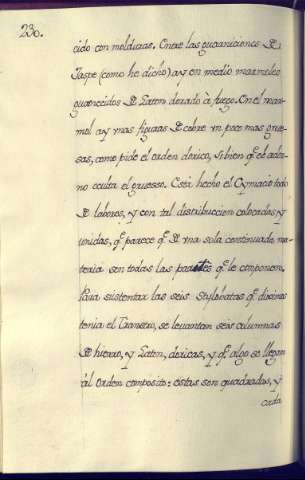 230.
cido con molduras. Entre las guarniciones D.
Jaspe (como he dicho) ay en medio marmoles
guarnecidos D Laton dorado à fuego. En el mar-
mol ay unas figuras D cobre un poco mas grue-
sas, como pide el orden dorico, si bien q̃ el ador-
no oculta el gruesso. Està hecho el Cymacio todo
D labores, y con tal distribuccion colocadas y
unidas, q̃ parece q̃ D una sola continuada ma-
teria son todas las partes q̃ le componen.
Para sustentar las seis Stylobatas q̃ diximos
tenia el Transito, se levantan seis columnas
D hierro, y Laton, doricas, y q̃ algo se llegan
al orden composito: estas son quadradas, y
cada